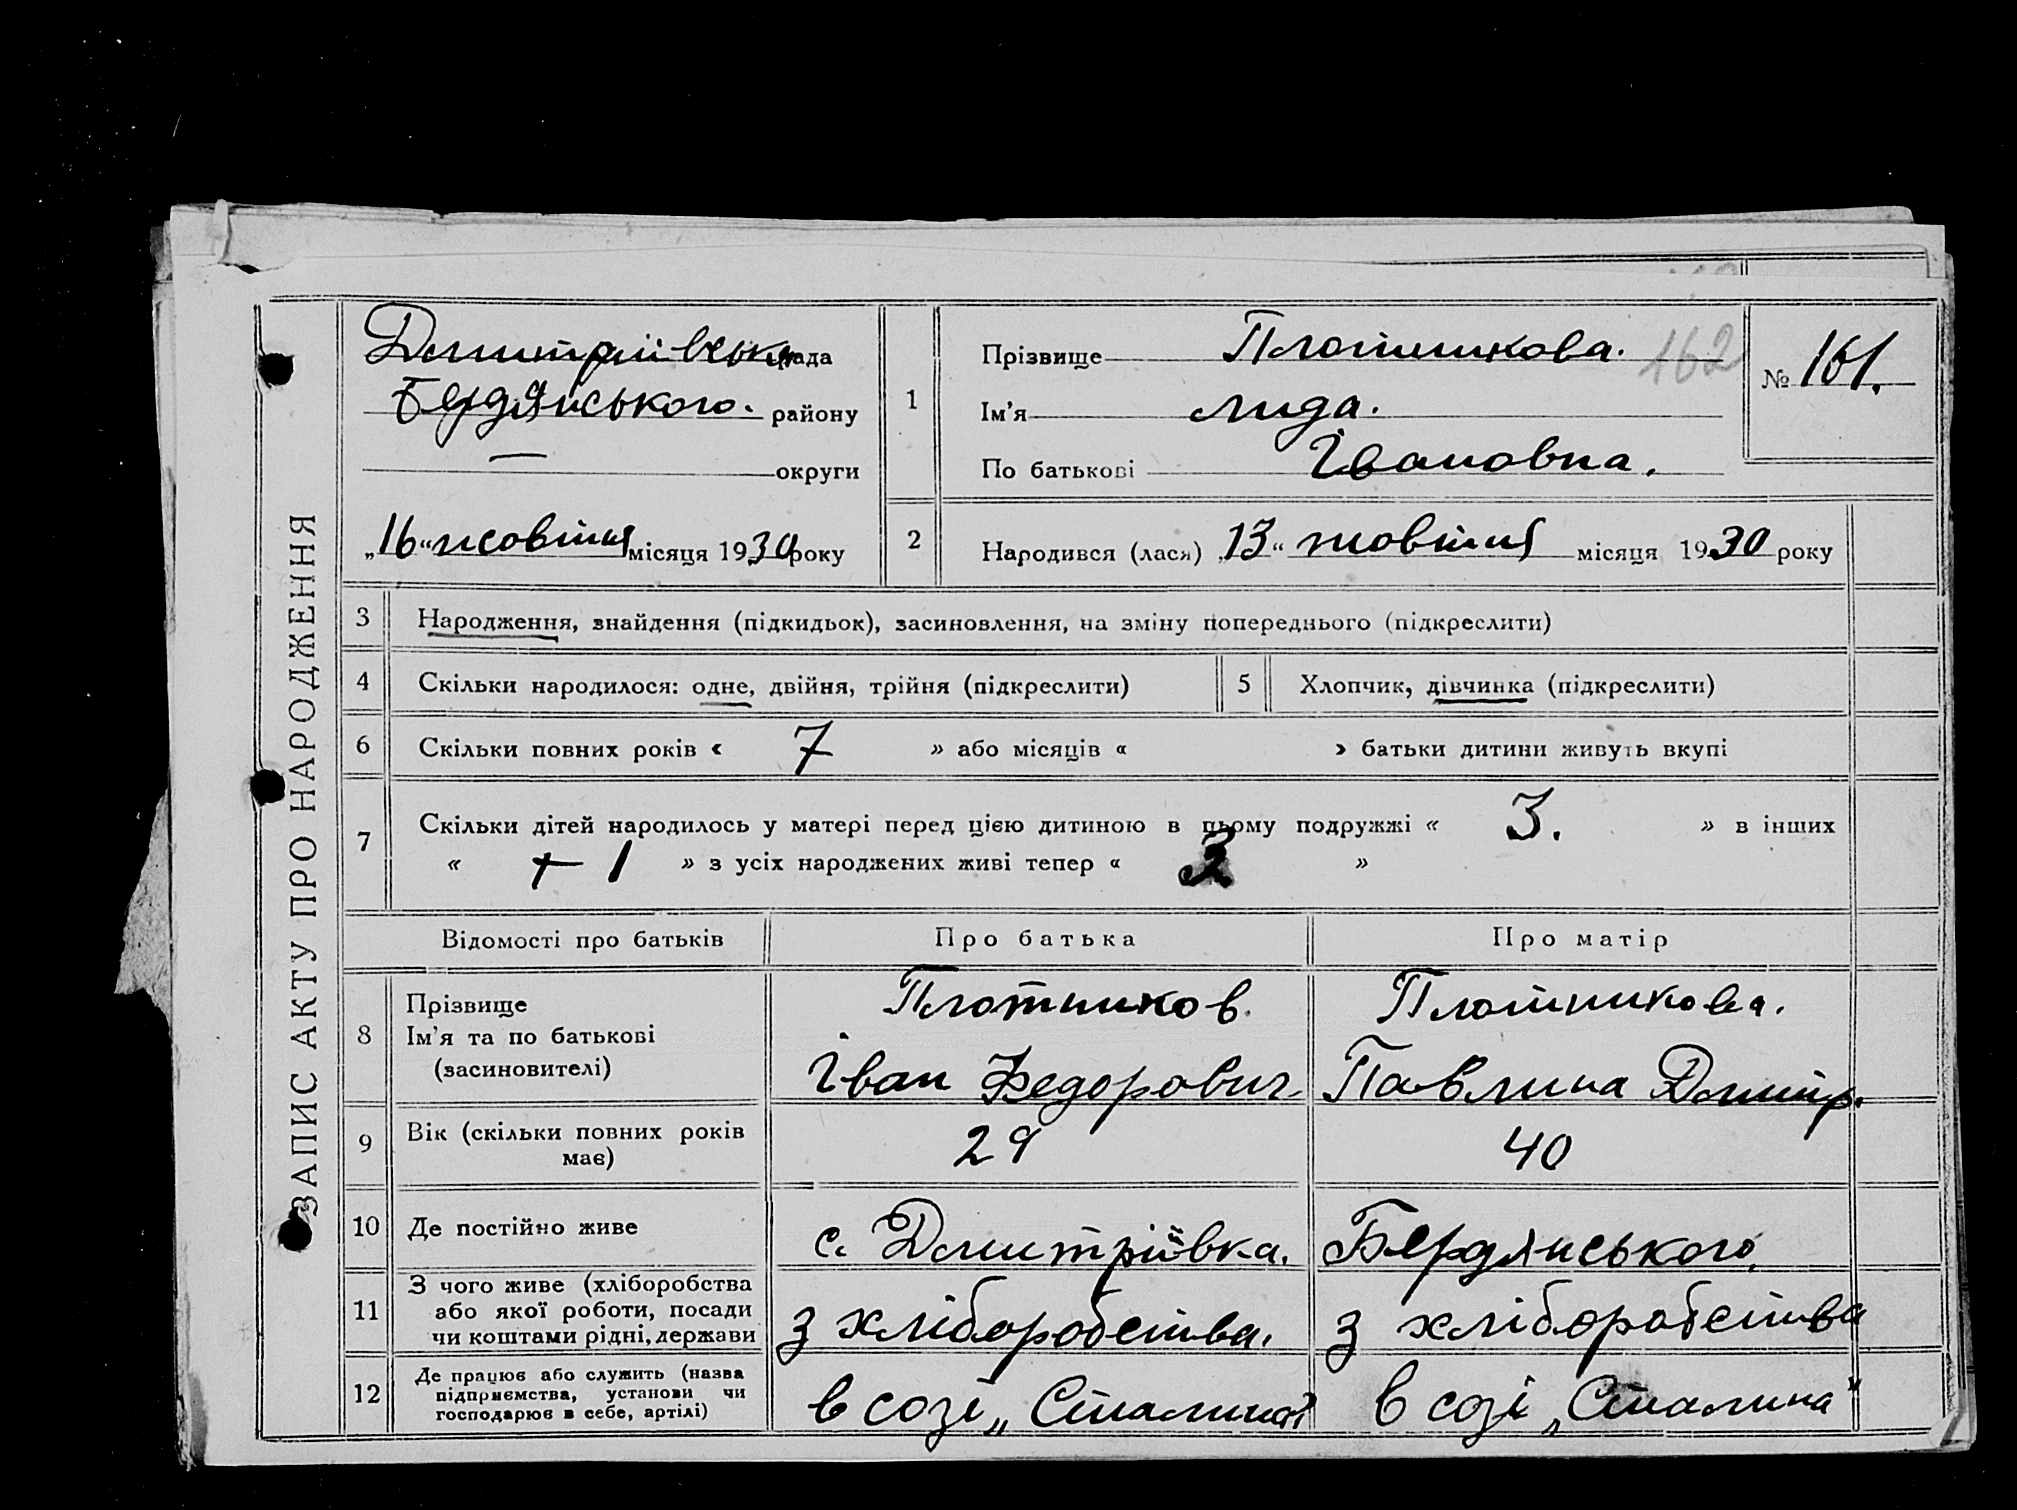 ЗАПИС АКТУ ПРО НАРОДЖЕННЯ
Дмитріївська рада
Бердянського. району
— округи
„16“ жовтня місяця 1930 року
1
Прізвище Плотникова.
162
№ 161.
Ім'я Лида.
По батькові Івановна.
2
Народився (лася) „13“ жовтня місяця 1930 року
3 Народження, знайдення (підкидьок), засиновлення, на зміну попереднього (підкреслити)
4 Скільки народилося: одне, двійня, трійня (підкреслити) 5 Хлопчик, дівчинка (підкреслити)
6 Скільки повних років « 7 » або місяців « » батьки дитини живуть вкупі
7 Скільки дітей народилось у матері перед цією дитиною в цьому подружжі « 3. » в інших
« + 1 » з усіх народжених живі тепер « »
Відомості про батьків Про батька Про матір
8 Прізвище Плотников. Плотникова.
Ім'я та по батькові Іван Федорович. Павлина Дмитр.
(засиновителі)
9 Вік (скільки повних років має) 29 40
10 Де постійно живе с. Дмитріївка. Бердянського.
11 З чого живе (хліборобства або якої роботи, посади чи коштами рідні, держави з хліборобства. з хліборобства
12 Де працює або служить (назва підприємства, установи чи господарює в себе, артілі) в созі „Сталина“ в созі „Сталина“